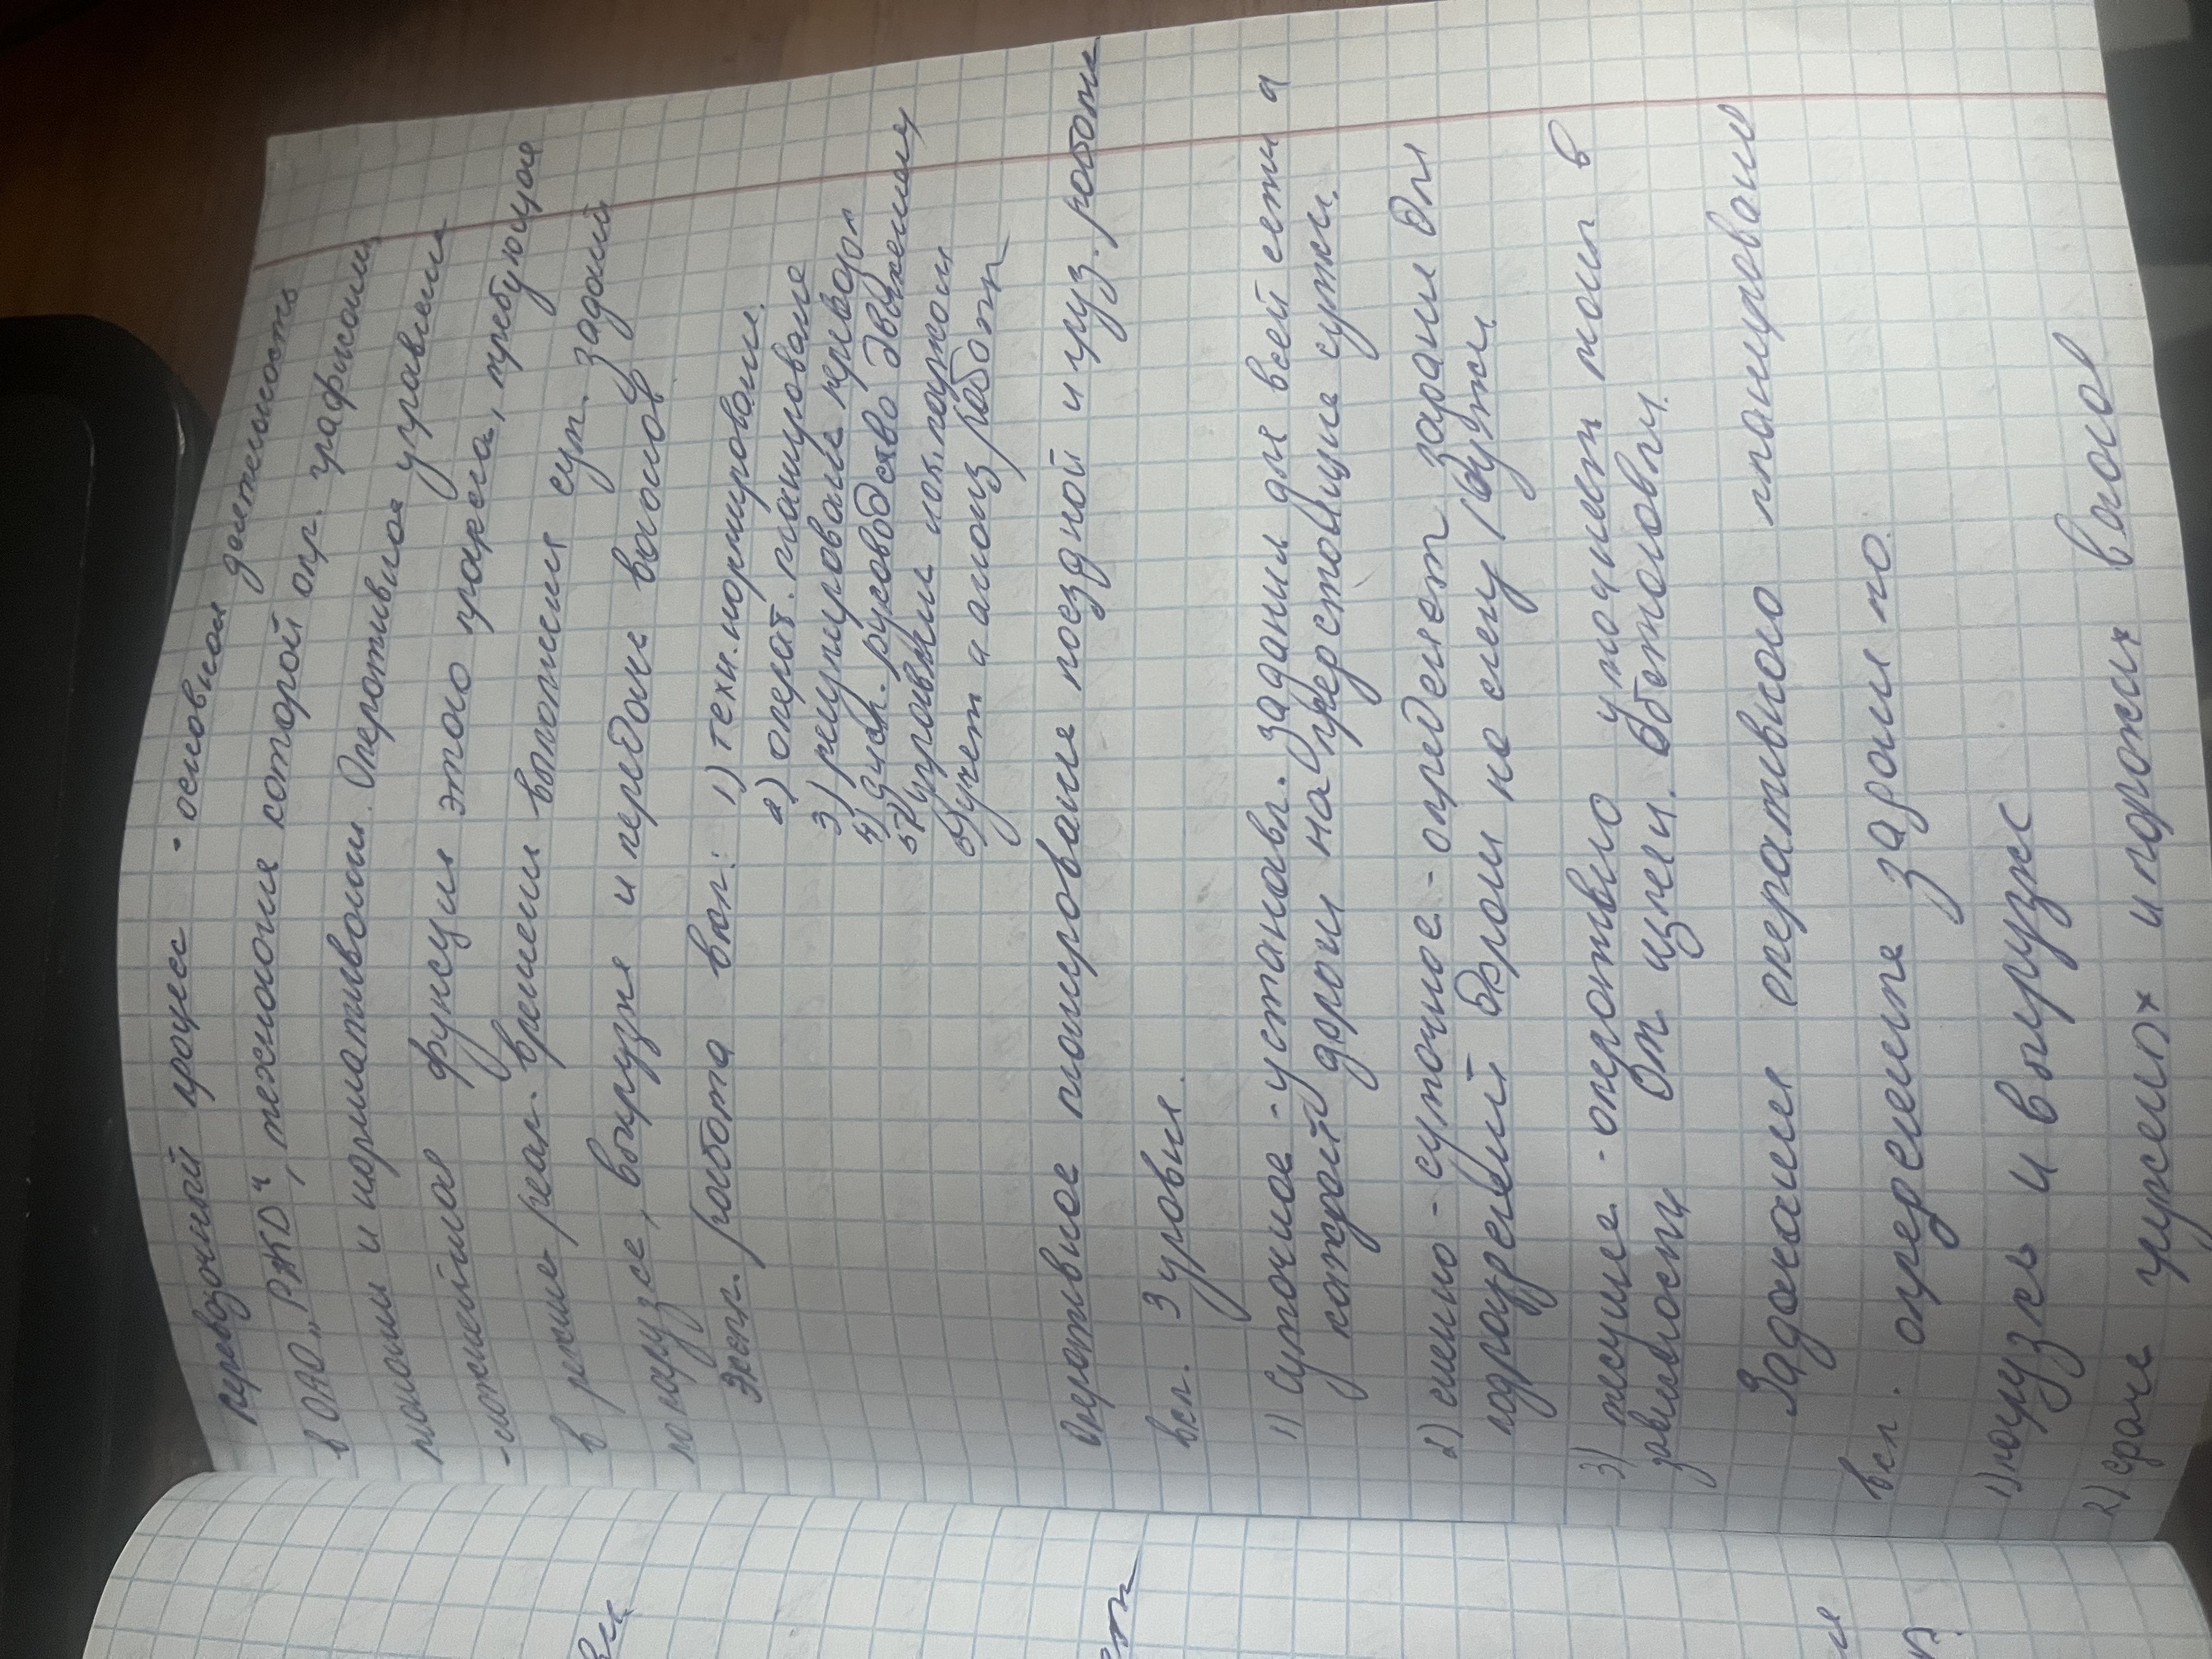 перевозочный процесс - основная деятельность
в ОАО „РЖД“, технология которой опр. графиком,
планом и нормативом. Оперативное управление
-сложнейшая функция этого процесса, требующая
в режиме реал. времени выполнения сут. заданий
погрузке, выгрузке и передаче вагонов
Экспл. работа вкл: 1) техн. нормирование.
2) операт. планирование
3) регулирование перевозок
4) дисп. руководство движением
5) управление лок. парком
6) учет и анализ работы
Оперативное планирование поездной и груз. работы
вкл. 3 уровня.
1) Суточное - устанавл. задания для всей сети и
каждой дороги на предстоящие сутки.
2) сменно - суточное - определяет задания для
подразделений дороги на смену / сутки
3) текущее - оперативно уточняет план в
зависимости от измен. обстановки.
Задания оперативного планирования
вкл. определение задания по.
1) погрузке и выгрузке
2) сдаче груженых и порожних вагонов